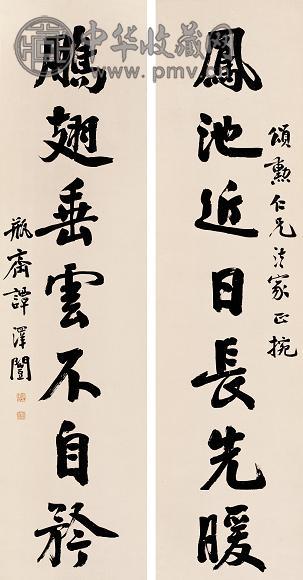 頌勳仁兄法家正捥
鳳池近日長先暖
鵬翅垂雲不自矜
瓶齋譚澤闓
中华收藏网
www.pmv.cn